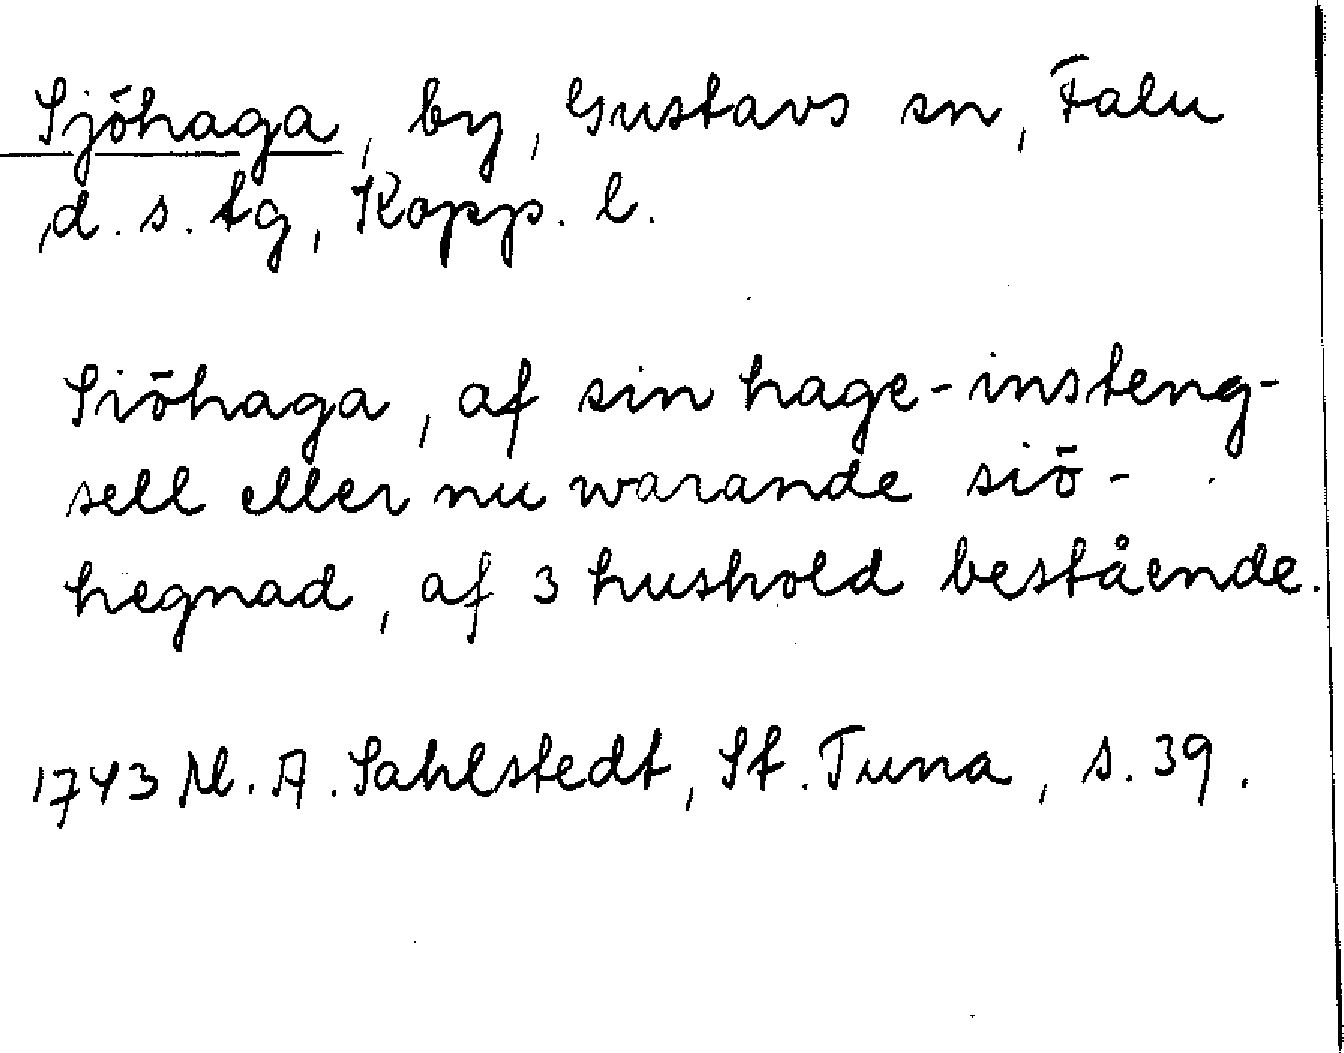 Sjöhaga, by, Gustavs sn, Falu
d. s. tg, Kopp. l.
Siöhaga, af sin hage-insteng-
sell eller nu warande siö-
hegnad, af 3 hushold bestående.
1743 M. A. Sahlstedt, St. Tuna, s. 39.